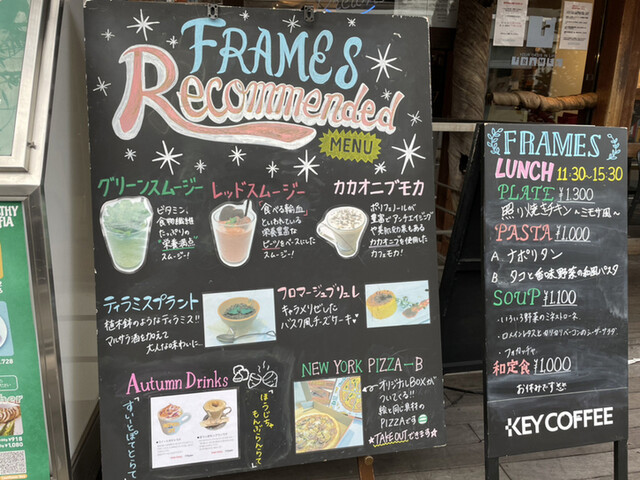 FRAMES
Recommended
MENU
グリーンスムージー
ビタミン、
食物繊維
たっぷりの
栄養満点
スムージー!
レッドスムージー
「食べる輸血」
といわれている
栄養豊富な
ビーツをベースにした
スムージー!
カカオニブモカ
ポリフェノールが
豊富でアンチエイジング
や美肌効果もある
カカオニブを使用した
カフェモカ!
ティラミスプラント
植木鉢のようなティラミス!!
マルサラ酒を加えて
大人な味わいに…
フロマージュブリュレ
キャラメリゼした
バスク風チーズケーキ♥
Autumn Drinks
すいーとぽてとらて
ほうじちゃ
もんぶらんらて
NEW YORK PIZZA→B
オリジナルBOXが
ついてくる!!
絵と同じ素材の
PIZZAです
★TAKE OUTできます★
FRAMES
LUNCH 11:30~15:30
PLATE ¥1,300
照り焼きチキン ~ミモザ風~
PASTA ¥1,000
A ナポリタン
B タコと香味野菜の和風パスタ
SOUP ¥1,100
・いろいろ野菜のミネストローネ
・ロメインレタスとカリカリベーコンのシーザーサラダ
・フォカッチャ
和定食 ¥1,000
お休みです
KEY COFFEE
¥918